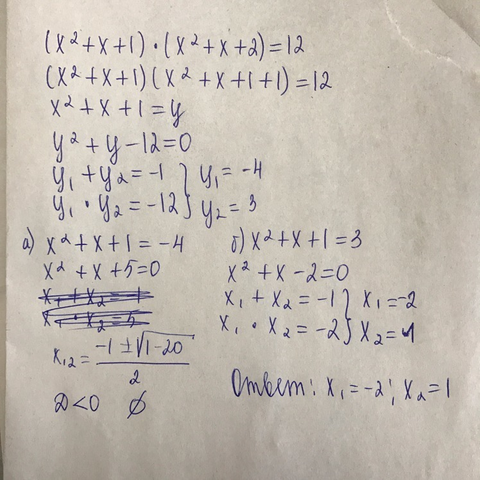 (x²+x+1)·(x²+x+2)=12
(x²+x+1)(x²+x+1+1)=12
x²+x+1=y
y²+y-12=0
y₁+y₂=-1 } y₁=-4
y₁·y₂=-12 } y₂=3
а) x²+x+1=-4
x²+x+5=0
x₁+x₂=-1
x₁·x₂=5
x₁,₂=(-1±√(1-20))/2
D<0 ∅
б) x²+x+1=3
x²+x-2=0
x₁+x₂=-1 } x₁=-2
x₁·x₂=-2 } x₂=1
Ответ: x₁=-2; x₂=1